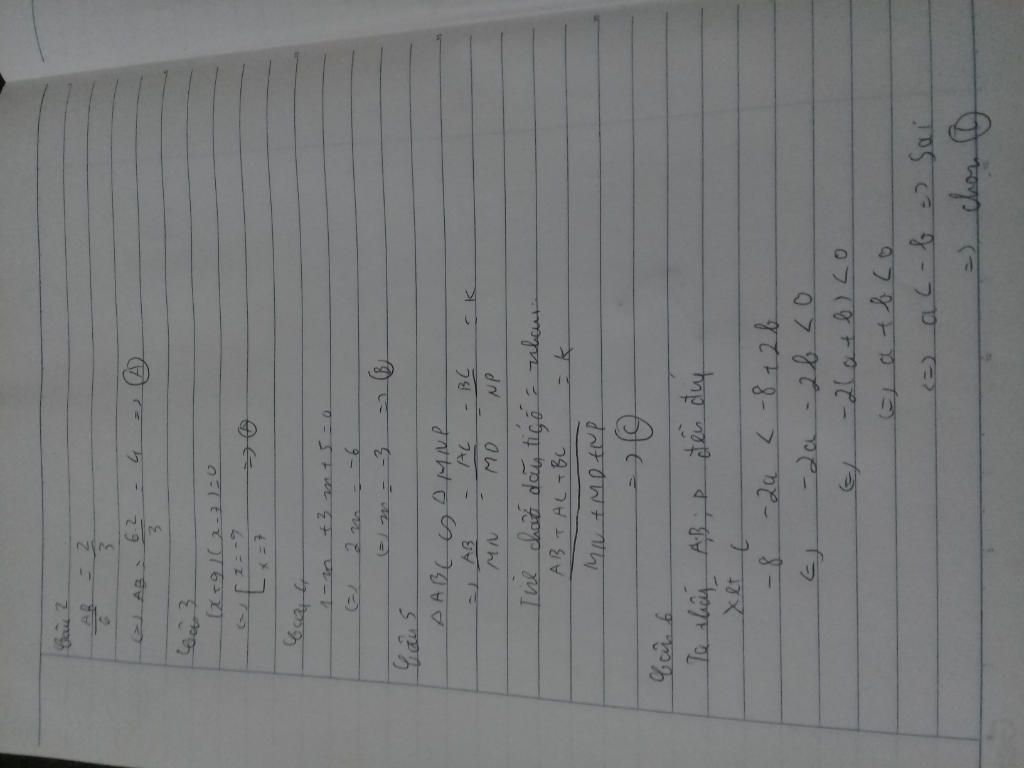 Câu 2
AB/6 = 2/3
(=) AB = 6.2/3 = 4 => (A)
Câu 3
(x+9)(x-7)=0
(=) [ x=-9
x=7 =>
Câu 4
1-m+3m+5=0
(=) 2m=-6
(=) m=-3 => (B)
Câu 5
ΔABC ∽ ΔMNP
=> AB/MN = AC/MP = BC/NP = K
Tính chất dãy tỉ số = nhau:
AB+AC+BC/MN+MP+NP = K
=> (C)
Câu 6
Ta thấy A;B;D đều đúng
Xét C
-8 -2a < -8+2b
(=) -2a-2b<0
(=) -2(a+b)<0
(=) a+b<0
(=) a<-b => Sai
=> chọn